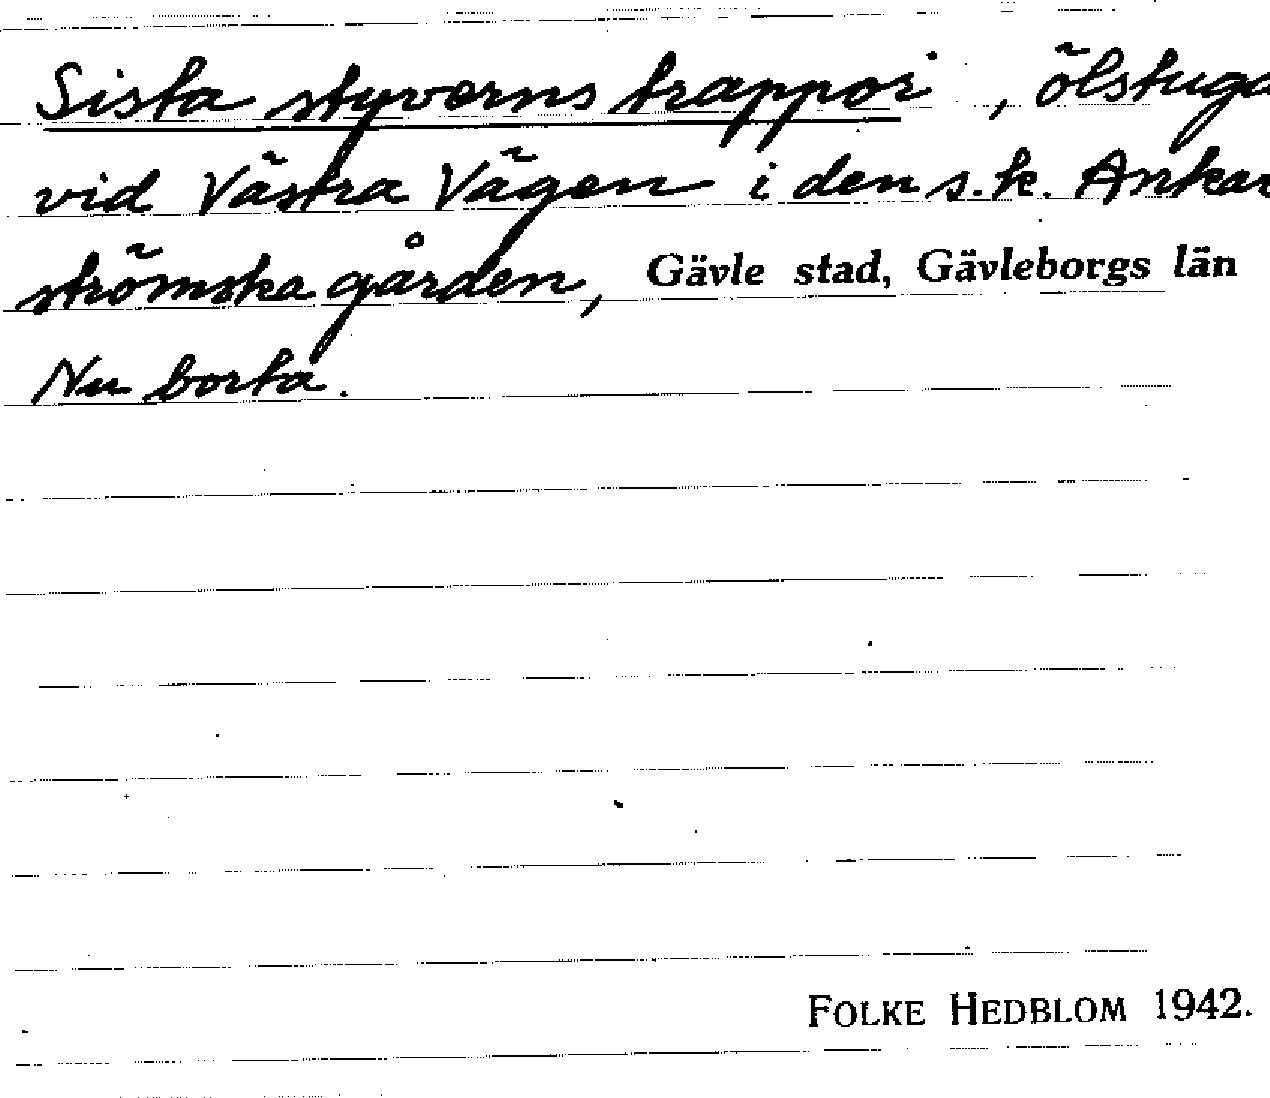 Sista styverns trappor, ölstuga
vid Västra Vägen i den s.k. Ankar
strömska gården, Gävle stad, Gävleborgs län
Nu borta.
FOLKE HEDBLOM 1942.